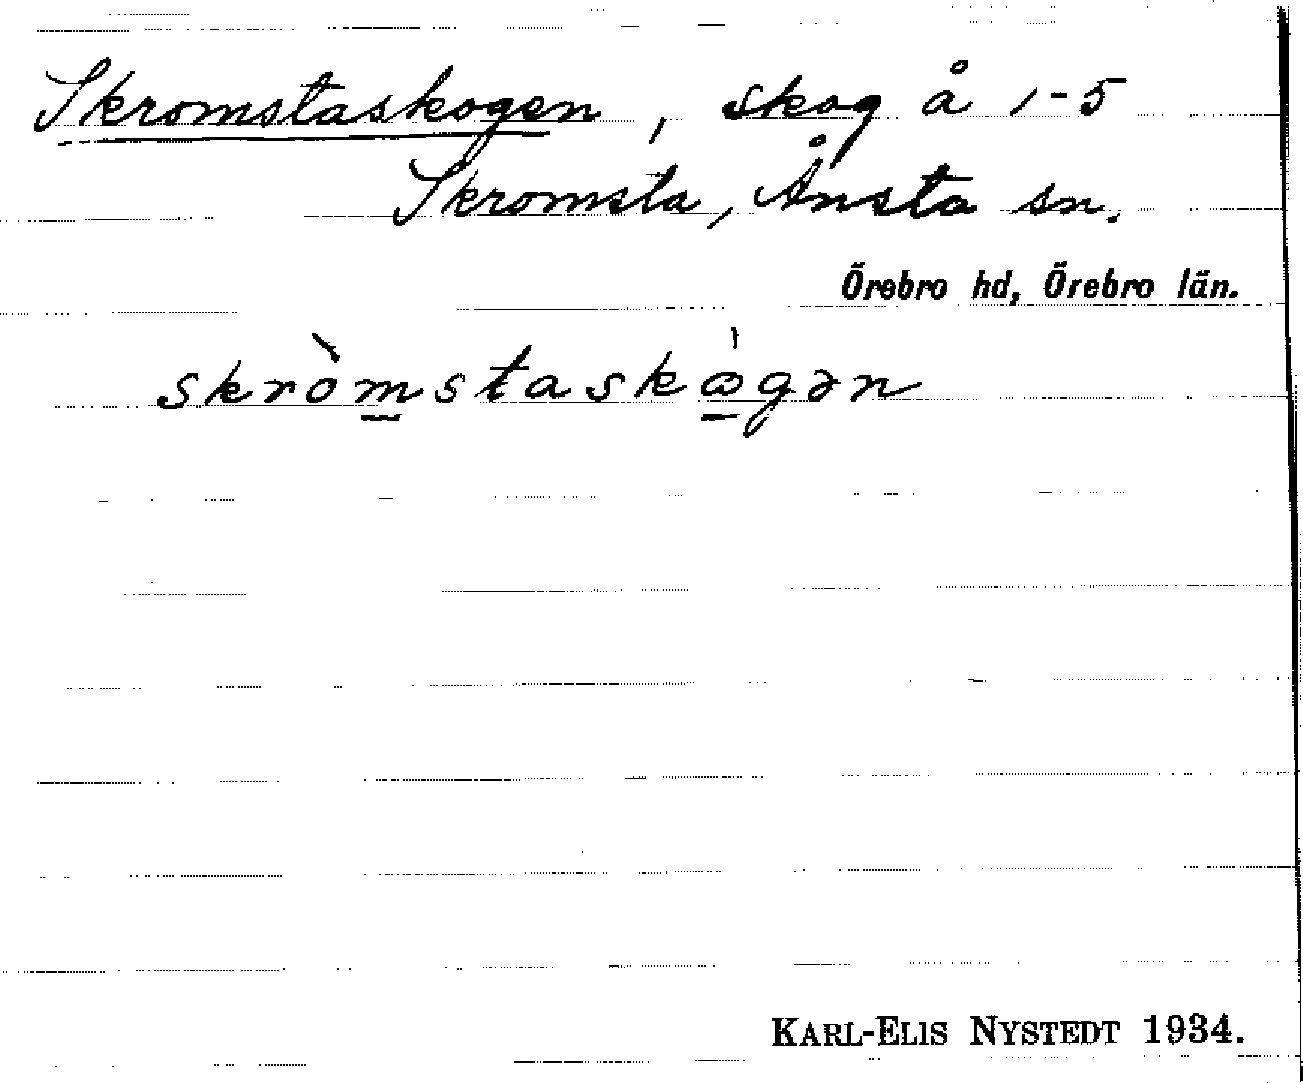 Skromstaskogen, skog å 1-5
Skromsta, Ånsta sn.
Örebro hd, Örebro län.
skròmstaskꝏ̀gən
KARL-ELIS NYSTEDT 1934.